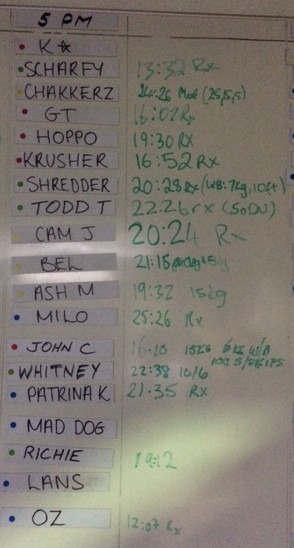 5 PM
K☆
SCHARFY 13:32 Rx
CHAKKERZ 24:26 Mod (25,5,5)
GT 16:02 Rx
HOPPO 19:30 RX
KRUSHER 16:52 RX
SHREDDER 20:28 Rx (WB: 7kg, 10ft)
TODD T 22:26 rx (50DU)
CAM J 20:24 Rx
BEL 21:15
ASH M 19:32 15kg
MILO 25:26 Rx
JOHN C 16:10 15KG 6KG W/B
WHITNEY 22:38 10/6
PATRINA K 21:35 Rx
MAD DOG
RICHIE 19:12
LANS
OZ 12:07 Rx